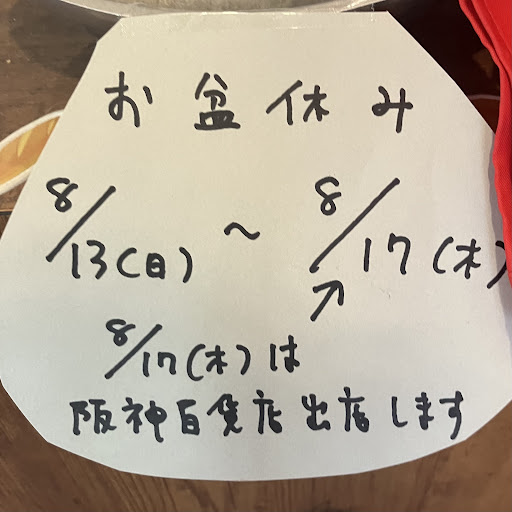 お盆休み
8/13(日)~8/17(木)
↗
8/17(木)は
阪神百貨店出店します